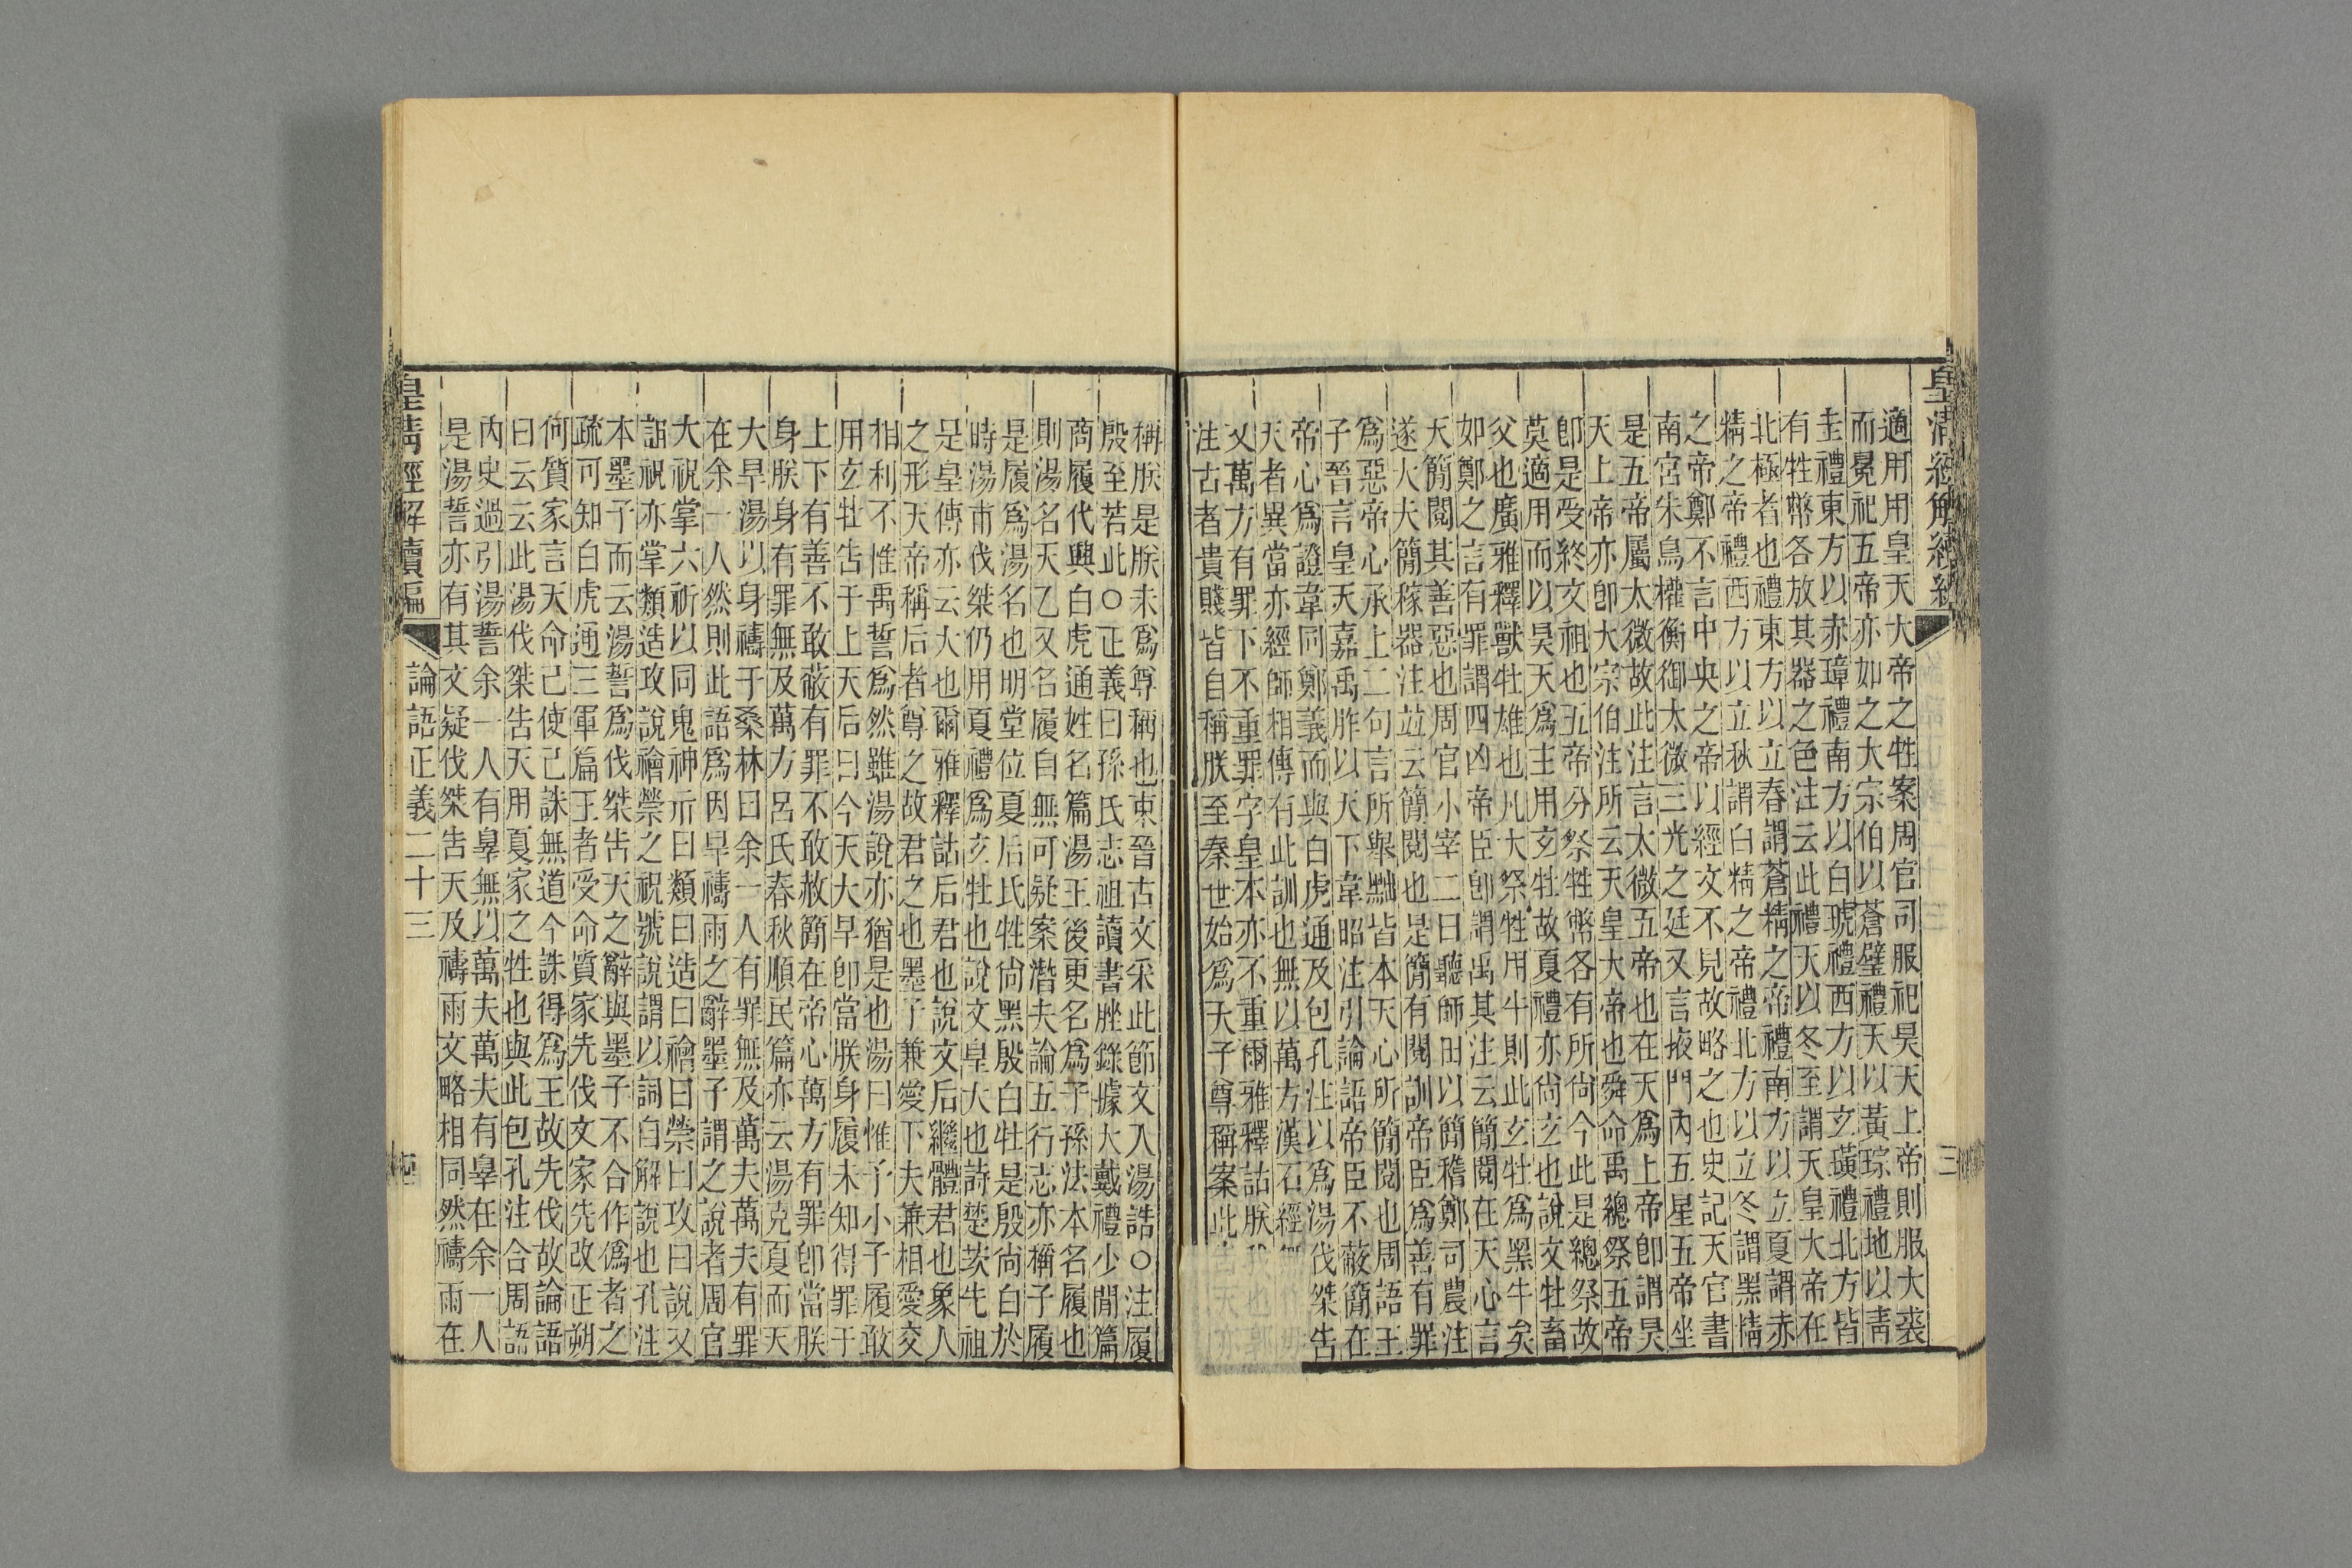 皇清經解續編
適用用皇天大帝之牲案周官司服祀昊天上帝則服大裘
而冕祀五帝亦如之大宗伯以蒼璧禮天以黃琮禮地以靑
圭禮東方以赤璋禮南方以白琥禮西方以玄璜禮北方皆
有牲幣各放其器之色注云此禮天以冬至謂天皇大帝在
北極者也禮東方以立春謂蒼精之帝禮南方以立夏謂赤
精之帝禮西方以立秋謂白精之帝禮北方以立冬謂黑精
之帝鄭不言中央之帝以經文不見故略之也史記天官書
南宮朱鳥權衡衡太微三光之廷又言掖門內五星五帝坐
是五帝屬太微故此注言太微五帝也在天爲上帝卽謂昊
天上帝亦卽大宗伯注所云天皇大帝也舜命禹總祭五帝
卽是受終文祖也五帝分祭牲幣各有所尙今此是總祭故
莫適用而以昊天爲主用玄牡故夏禮亦尙玄也說文牡畜
父也廣雅釋獸牡雄也凡大祭牲用牛則此玄牡爲黑牛矣
如鄭之言有罪謂四凶帝臣卽謂禹其注云簡閱在天心言
天簡閱其善惡也周官小宰二曰聽師田以簡稽鄭司農注
遂大夫簡稼器注竝云簡閱也是簡有閱訓帝臣爲善有罪
爲惡帝心承上二句言所舉黜皆本天心所簡閱也周語王
子晉言皇天嘉禹胙以天下韋昭注引論語帝臣不蔽簡在
帝心爲證韋同鄭義而與白虎通及包孔注以爲湯伐桀告
天者異當亦經師相傳有此訓也無以萬方漢石經
又萬方有罪下不重罪字皇本亦不重爾雅釋詁朕
注古者貴賤皆自稱朕至秦世始爲天子尊稱案此
稱朕是朕未爲尊稱也東晉古文采此節文入湯誥○注履
殷至若此○正義曰孫氏志祖讀書脞錄據大戴禮少閒篇
商履代興白虎通姓名篇湯王後更名爲子孫法本名履也
則湯名天乙又名履自無可疑案潛夫論五行志亦稱子履
是履爲湯名也明堂位夏后氏牲尙黑殷白牡是殷尙白於
時湯甫伐桀仍用夏禮爲玄牡也說文皇大也詩楚茨先祖
是皇傳亦云大也爾雅釋詁后君也說文后繼體君也象人
之形天帝稱后者尊之故君之也墨子兼愛下夫兼相愛交
相利不惟禹誓爲然雖湯說亦猶是也湯曰惟予小子履敢
用玄牡告于上天后曰今天大旱卽當朕身履未知得罪于
上下有善不敢蔽有罪不敢赦簡在帝心萬方有罪卽當朕
身朕身有罪無及萬方呂氏春秋順民篇亦云湯克夏而天
大旱湯以身禱于桑林曰余一人有罪無及萬夫萬夫有罪
在余一人然則此語爲因旱禱雨之辭墨子謂之說者周官
大祝掌六祈以同鬼神示曰類曰造曰禬曰禜曰攻曰說又
詛祝亦掌類造攻說禬禜之祝號說謂以詞自解說也孔注
本墨子而云湯誓爲伐桀告天之辭與墨子不合作僞者之
疏可知白虎通三軍篇王者受命質家先伐文家先改正朔
何質家言天命己使己誅無道今誅得爲王故先伐故論語
曰云云此湯伐桀告天用夏家之牲也與此包孔注合周語
內史過引湯誓余一人有辠無以萬夫萬夫有辠在余一人
是湯誓亦有其文疑伐桀告天及禱雨文略相同然禱雨在
皇淸經解續編　論語正義二十三